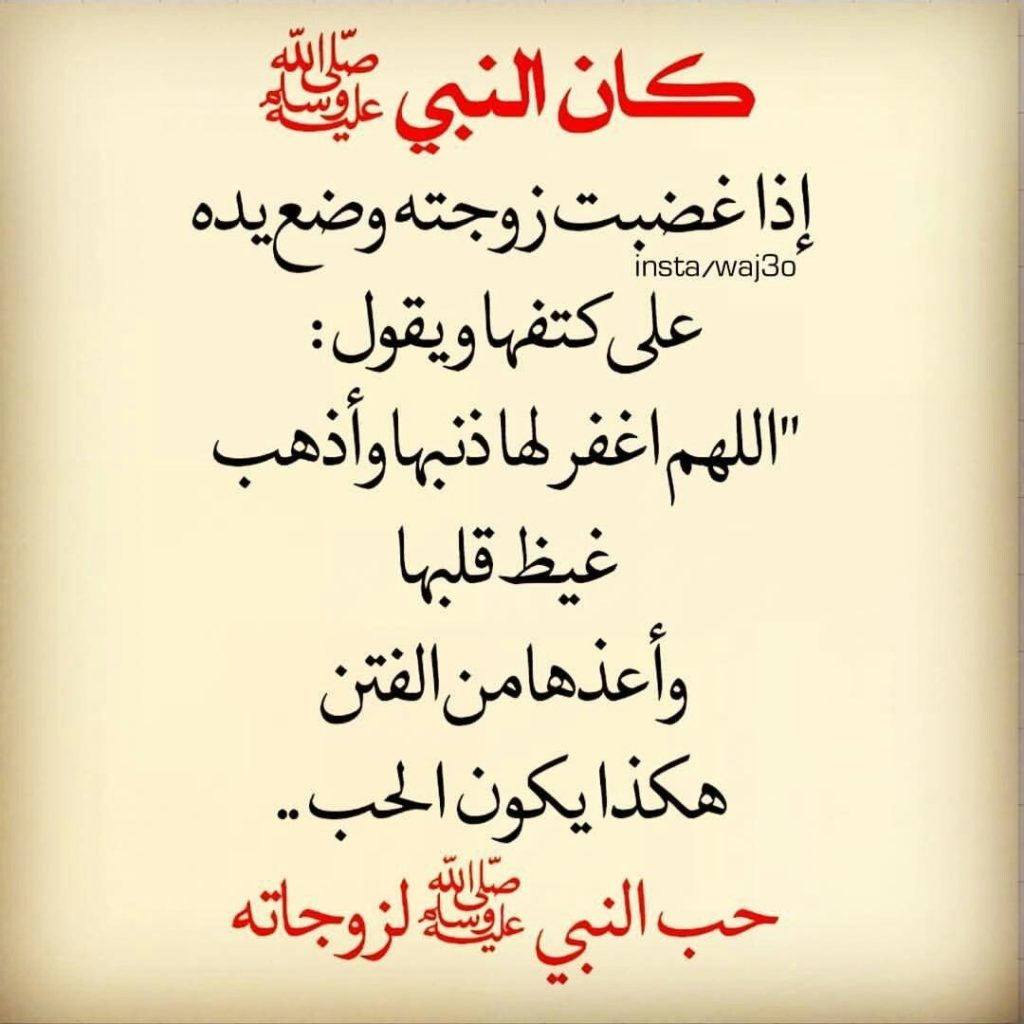 كان النبي ﷺ
إذا غضبت زوجته وضع يده
insta/waj3o
على كتفها ويقول :
"اللهم اغفر لها ذنبها وأذهب
غيظ قلبها
وأعذها من الفتن
هكذا يكون الحب ..
حب النبي ﷺ لزوجاته